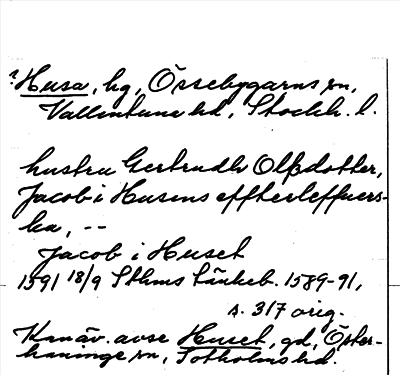 ? Husa, hg, Össebygarns sn,
Vallentuna hd, Stockh. l.
hustru Gertrudh Olßdotter,
Jacob i Husens effterleffuers-
ka, --
Jacob i Huset
1591 18/9 Sthms tänkeb. 1589-91,
s. 317 orig.
Kan äv. avse Huset, gd, Öster-
haninge sn, Sotholms hd.